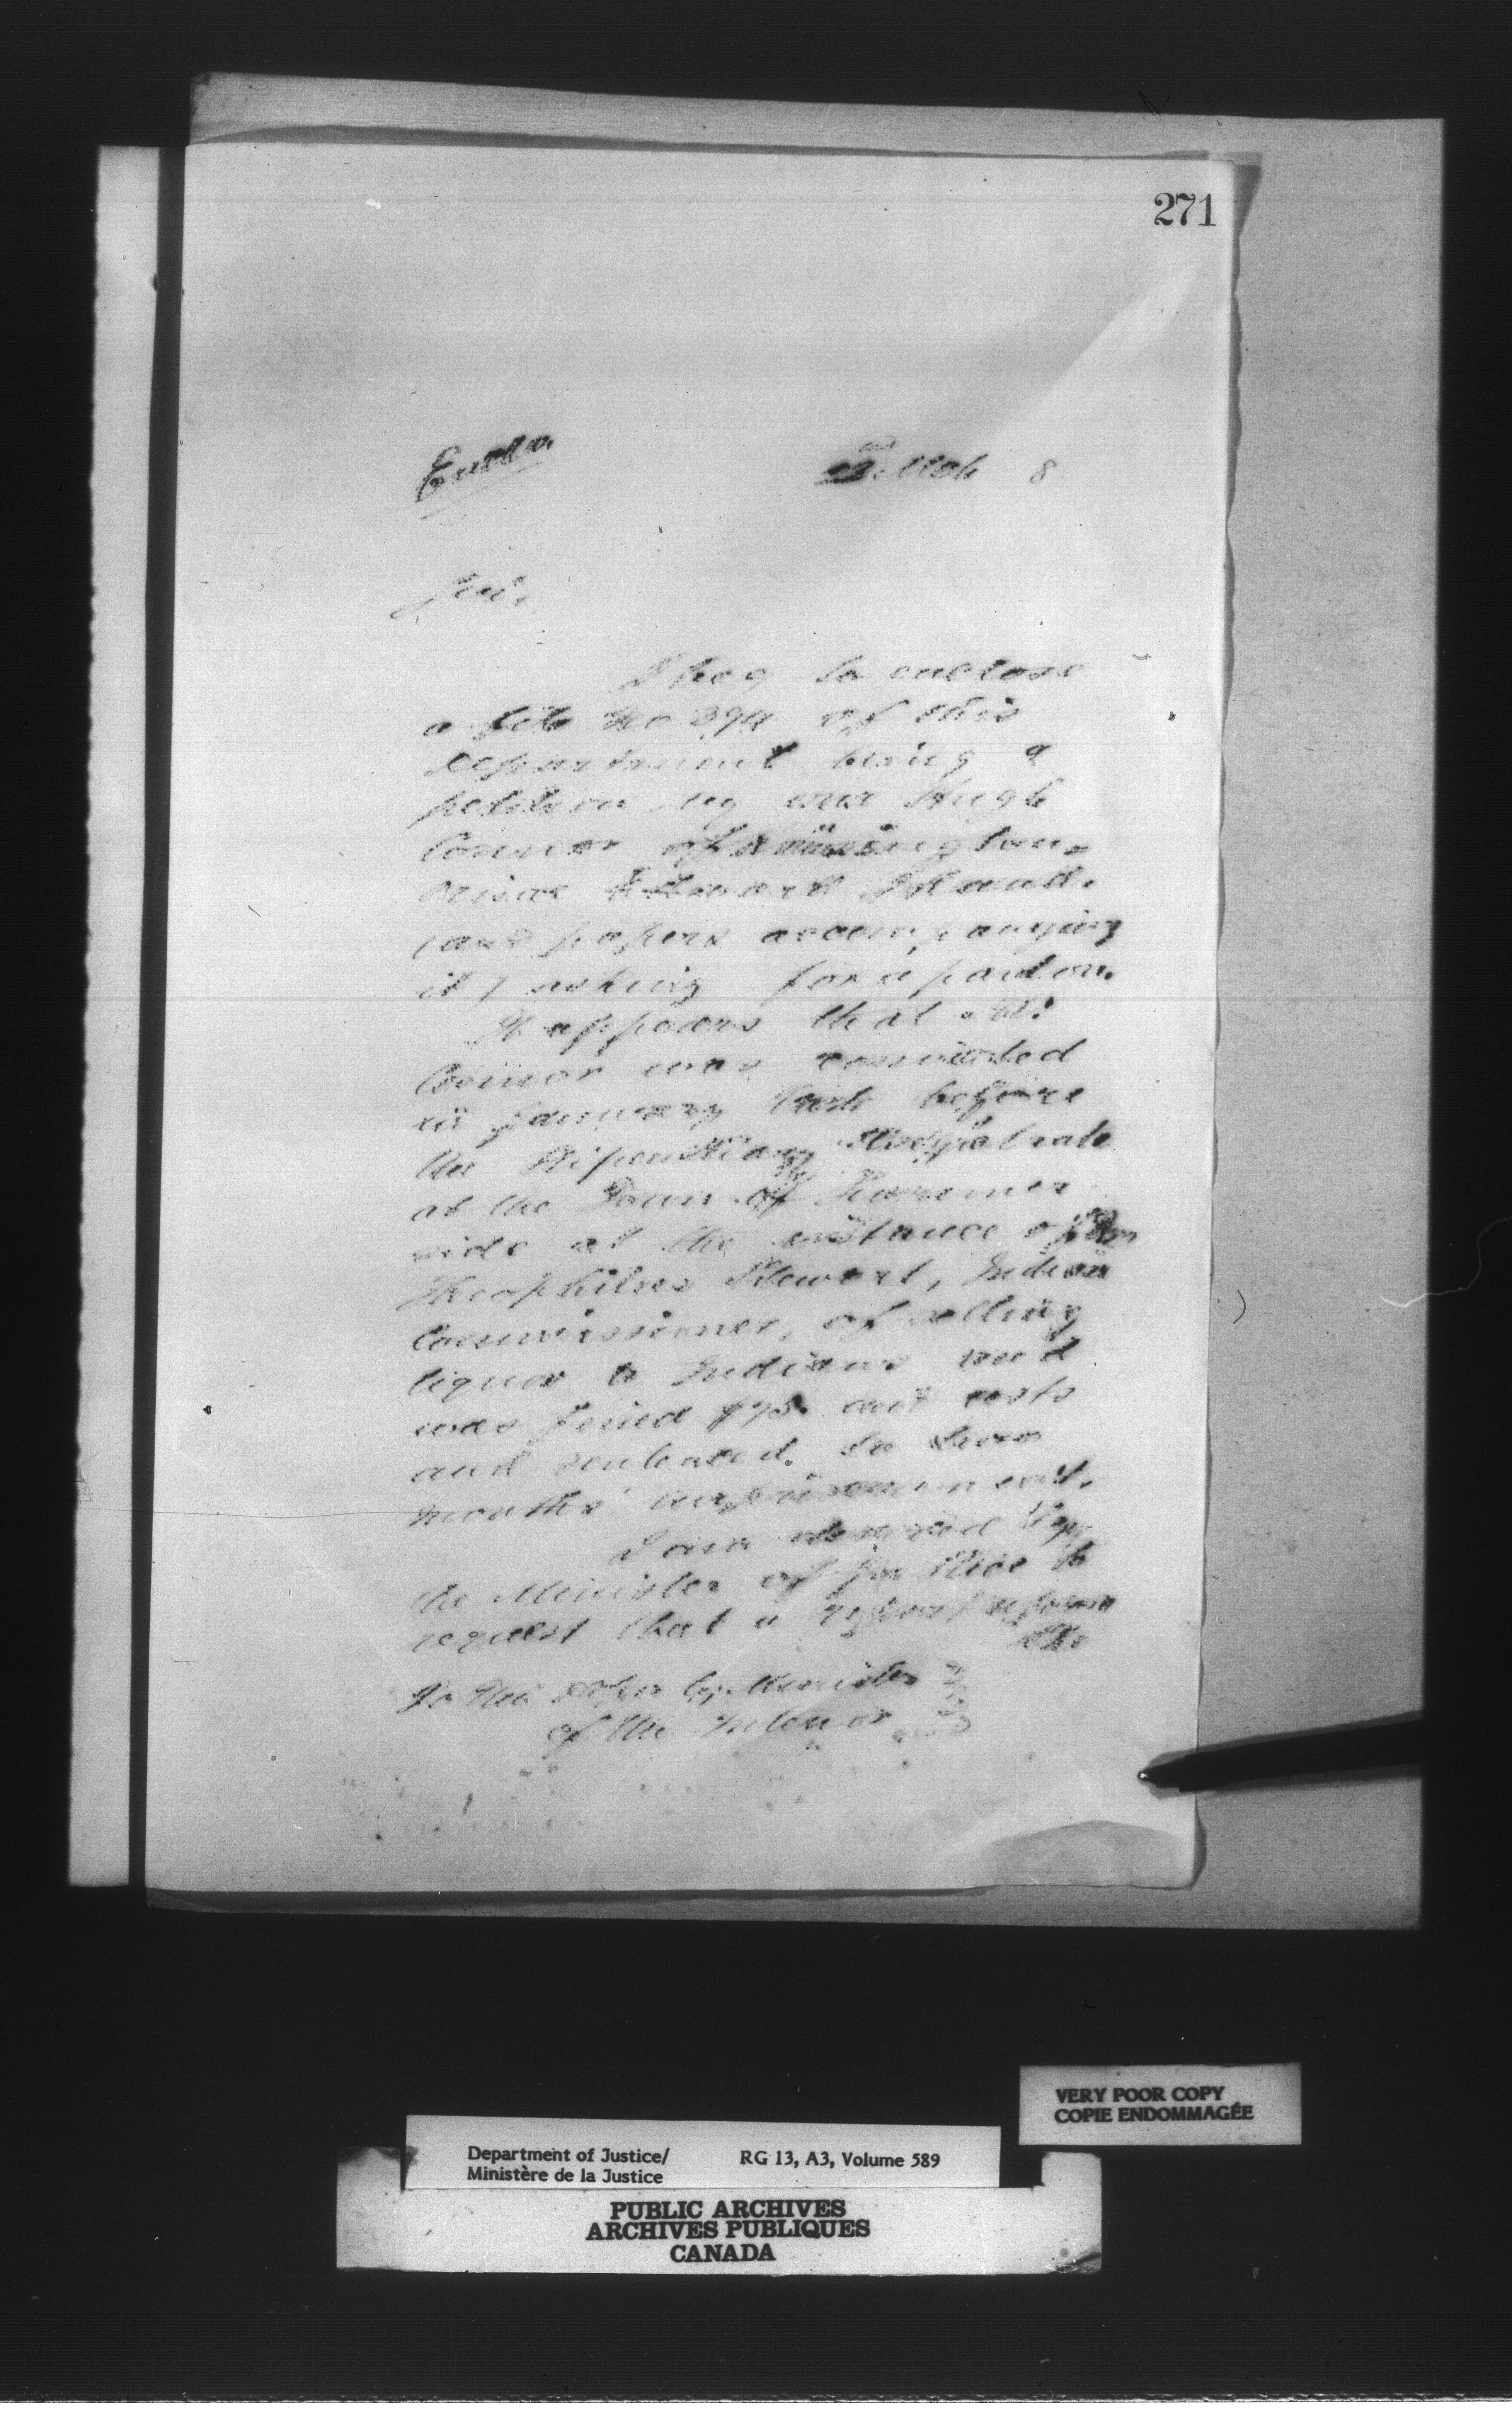 271
Enclo. Mch 8
Sir,
I beg to enclose
a file No 394 of this
Department being a
petition by one Hugh
Connor of
Prince Edward Island.
(and papers accompanying
it) asking for a pardon.
It appears that Mr.
Connor was convicted
in January last before
the Stipendiary Magistrate
at the Town of Summer
side at the instance of
Theophilus Stewart, Indian
Commissioner, of selling
liquor to Indians and
was fined and costs
and sentenced to
months' imprisonment.
I am desired by
the Minister of Justice to
request that a report upon
the
To the Deputy Minister
of the Interior
VERY POOR COPY
COPIE ENDOMMAGÉE
Department of Justice/ RG 13, A3, Volume 589
Ministère de la Justice
PUBLIC ARCHIVES
ARCHIVES PUBLIQUES
CANADA